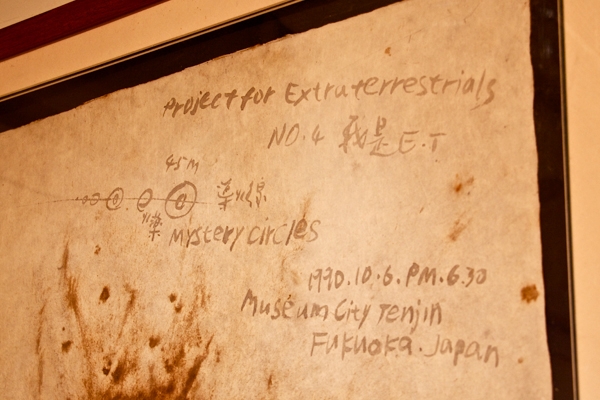 Project for Extraterrestrials
NO.4 我是E.T
45M
火薬 薬火線
Mystery circles
1990.10.6.PM.6.30
Museum City Tenjin
Fukuoka.Japan